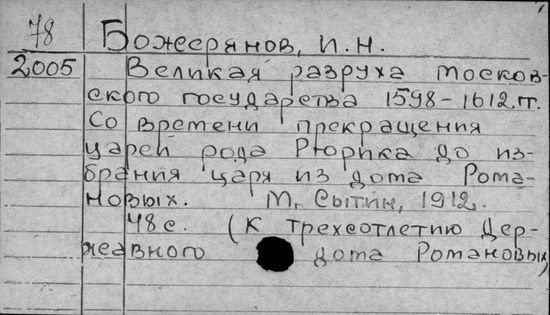 78
Божерянов, И.Н.
2005 Великая разруха Москов-
ского государства 1598-1612.гг.
Со времени прекращения
царей рода Рюрика до из-
брания царя из дома Рома-
новых. М, Сытин, 1912.
48с. (К трехсотлетию Дер-
жавного дома Романовых)